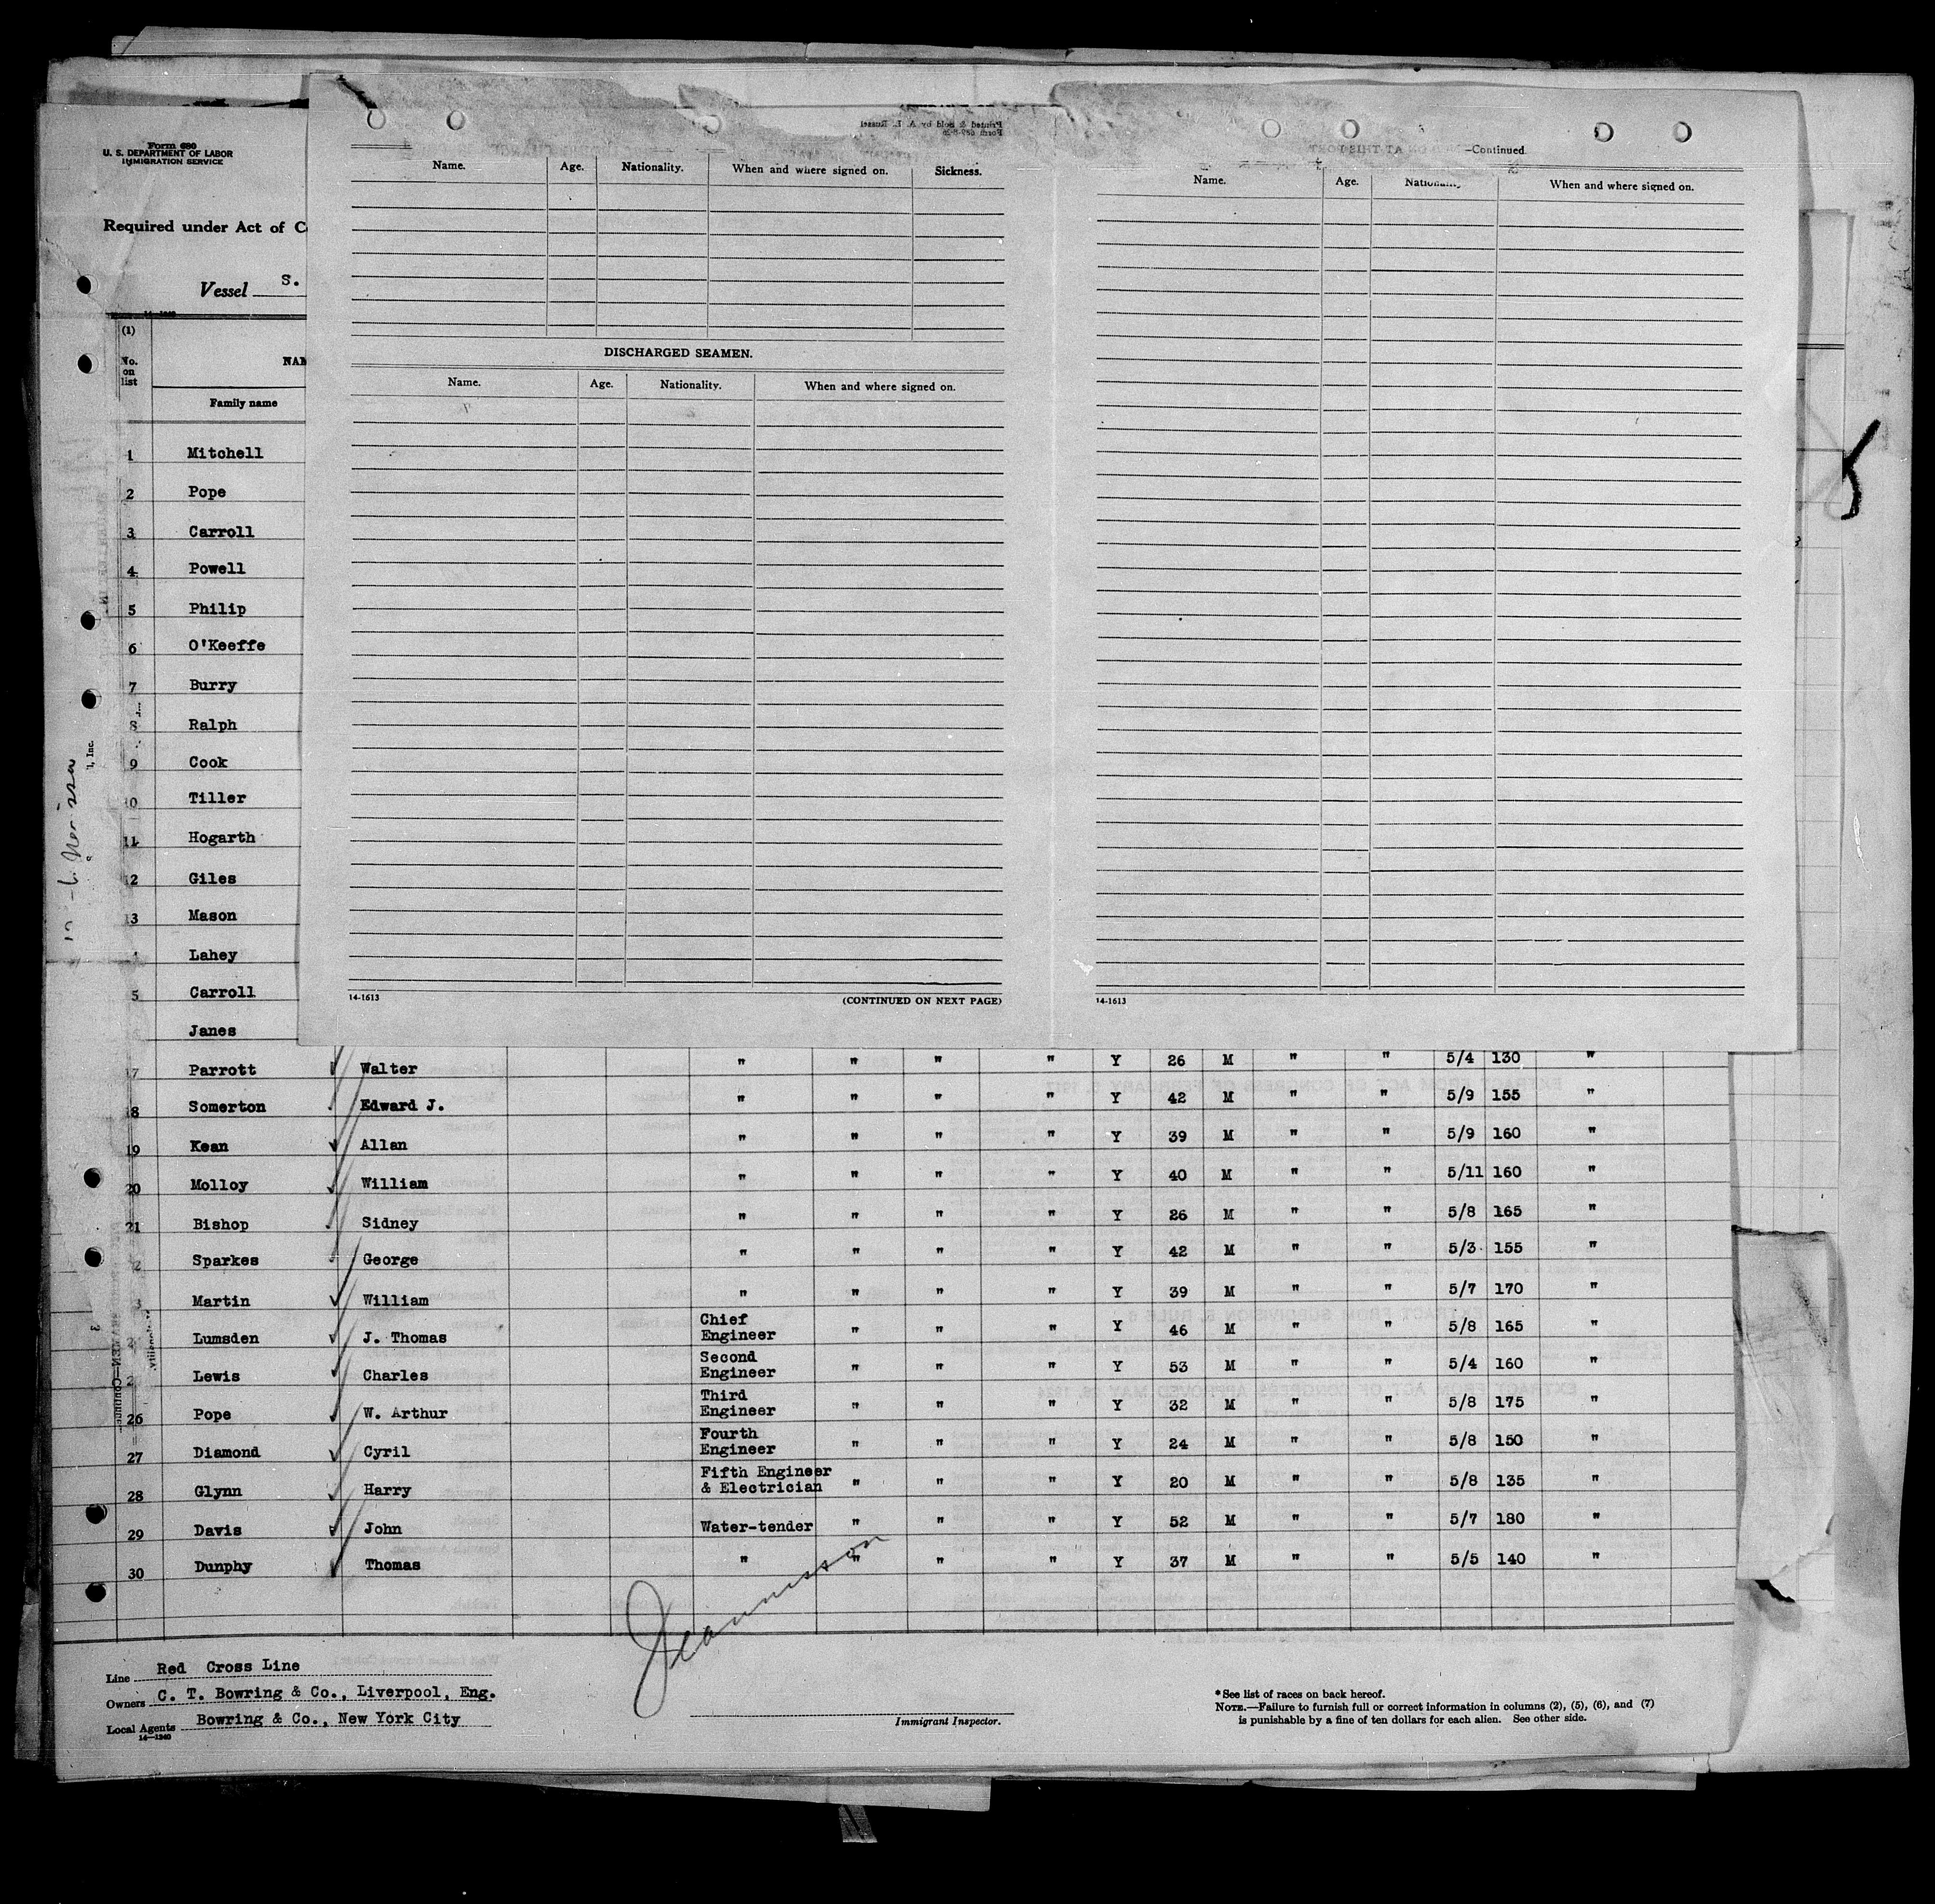 Form 680
U. S. DEPARTMENT OF LABOR
IMMIGRATION SERVICE
Required under Act of C
Vessel S.
14—1240
(1)
No. on list
NAM
Family name
Printed & Sold by A. L. Russel
Form 689-8-26
Name. Age. Nationality. When and where signed on. Sickness.
DISCHARGED SEAMEN.
Name. Age. Nationality. When and where signed on.
14-1613 (CONTINUED ON NEXT PAGE)
—Continued.
Name. Age. Nationality. When and where signed on.
14-1613
1 Mitchell
2 Pope
3 Carroll
4 Powell
5 Philip
6 O'Keeffe
7 Burry
8 Ralph
9 Cook
10 Tiller
11 Hogarth
12 Giles
13 Mason
Lahey
5 Carroll
Janes
17 Parrott Walter " " " " Y 26 M " " 5/4 130 "
18 Somerton Edward J. " " " " Y 42 M " " 5/9 155 "
19 Kean Allan " " " " Y 39 M " " 5/9 160 "
20 Molloy William " " " " Y 40 M " " 5/11 160 "
21 Bishop Sidney " " " " Y 26 M " " 5/8 165 "
2 Sparkes George " " " " Y 42 M " " 5/3 155 "
3 Martin William " " " " Y 39 M " " 5/7 170 "
2 Lumsden J. Thomas Chief Engineer " " " Y 46 M " " 5/8 165 "
2 Lewis Charles Second Engineer " " " Y 53 M " " 5/4 160 "
26 Pope W. Arthur Third Engineer " " " Y 32 M " " 5/8 175 "
27 Diamond Cyril Fourth Engineer " " " Y 24 M " " 5/8 150 "
28 Glynn Harry Fifth Engineer & Electrician " " " Y 20 M " " 5/8 135 "
29 Davis John Water-tender " " " Y 52 M " " 5/7 180 "
30 Dunphy Thomas " " " " Y 37 M " " 5/5 140 "
Line Red Cross Line
Owners C. T. Bowring & Co., Liverpool, Eng.
Local Agents Bowring & Co., New York City
14—1240
Immigrant Inspector.
*See list of races on back hereof.
NOTE.—Failure to furnish full or correct information in columns (2), (5), (6), and (7)
is punishable by a fine of ten dollars for each alien. See other side.